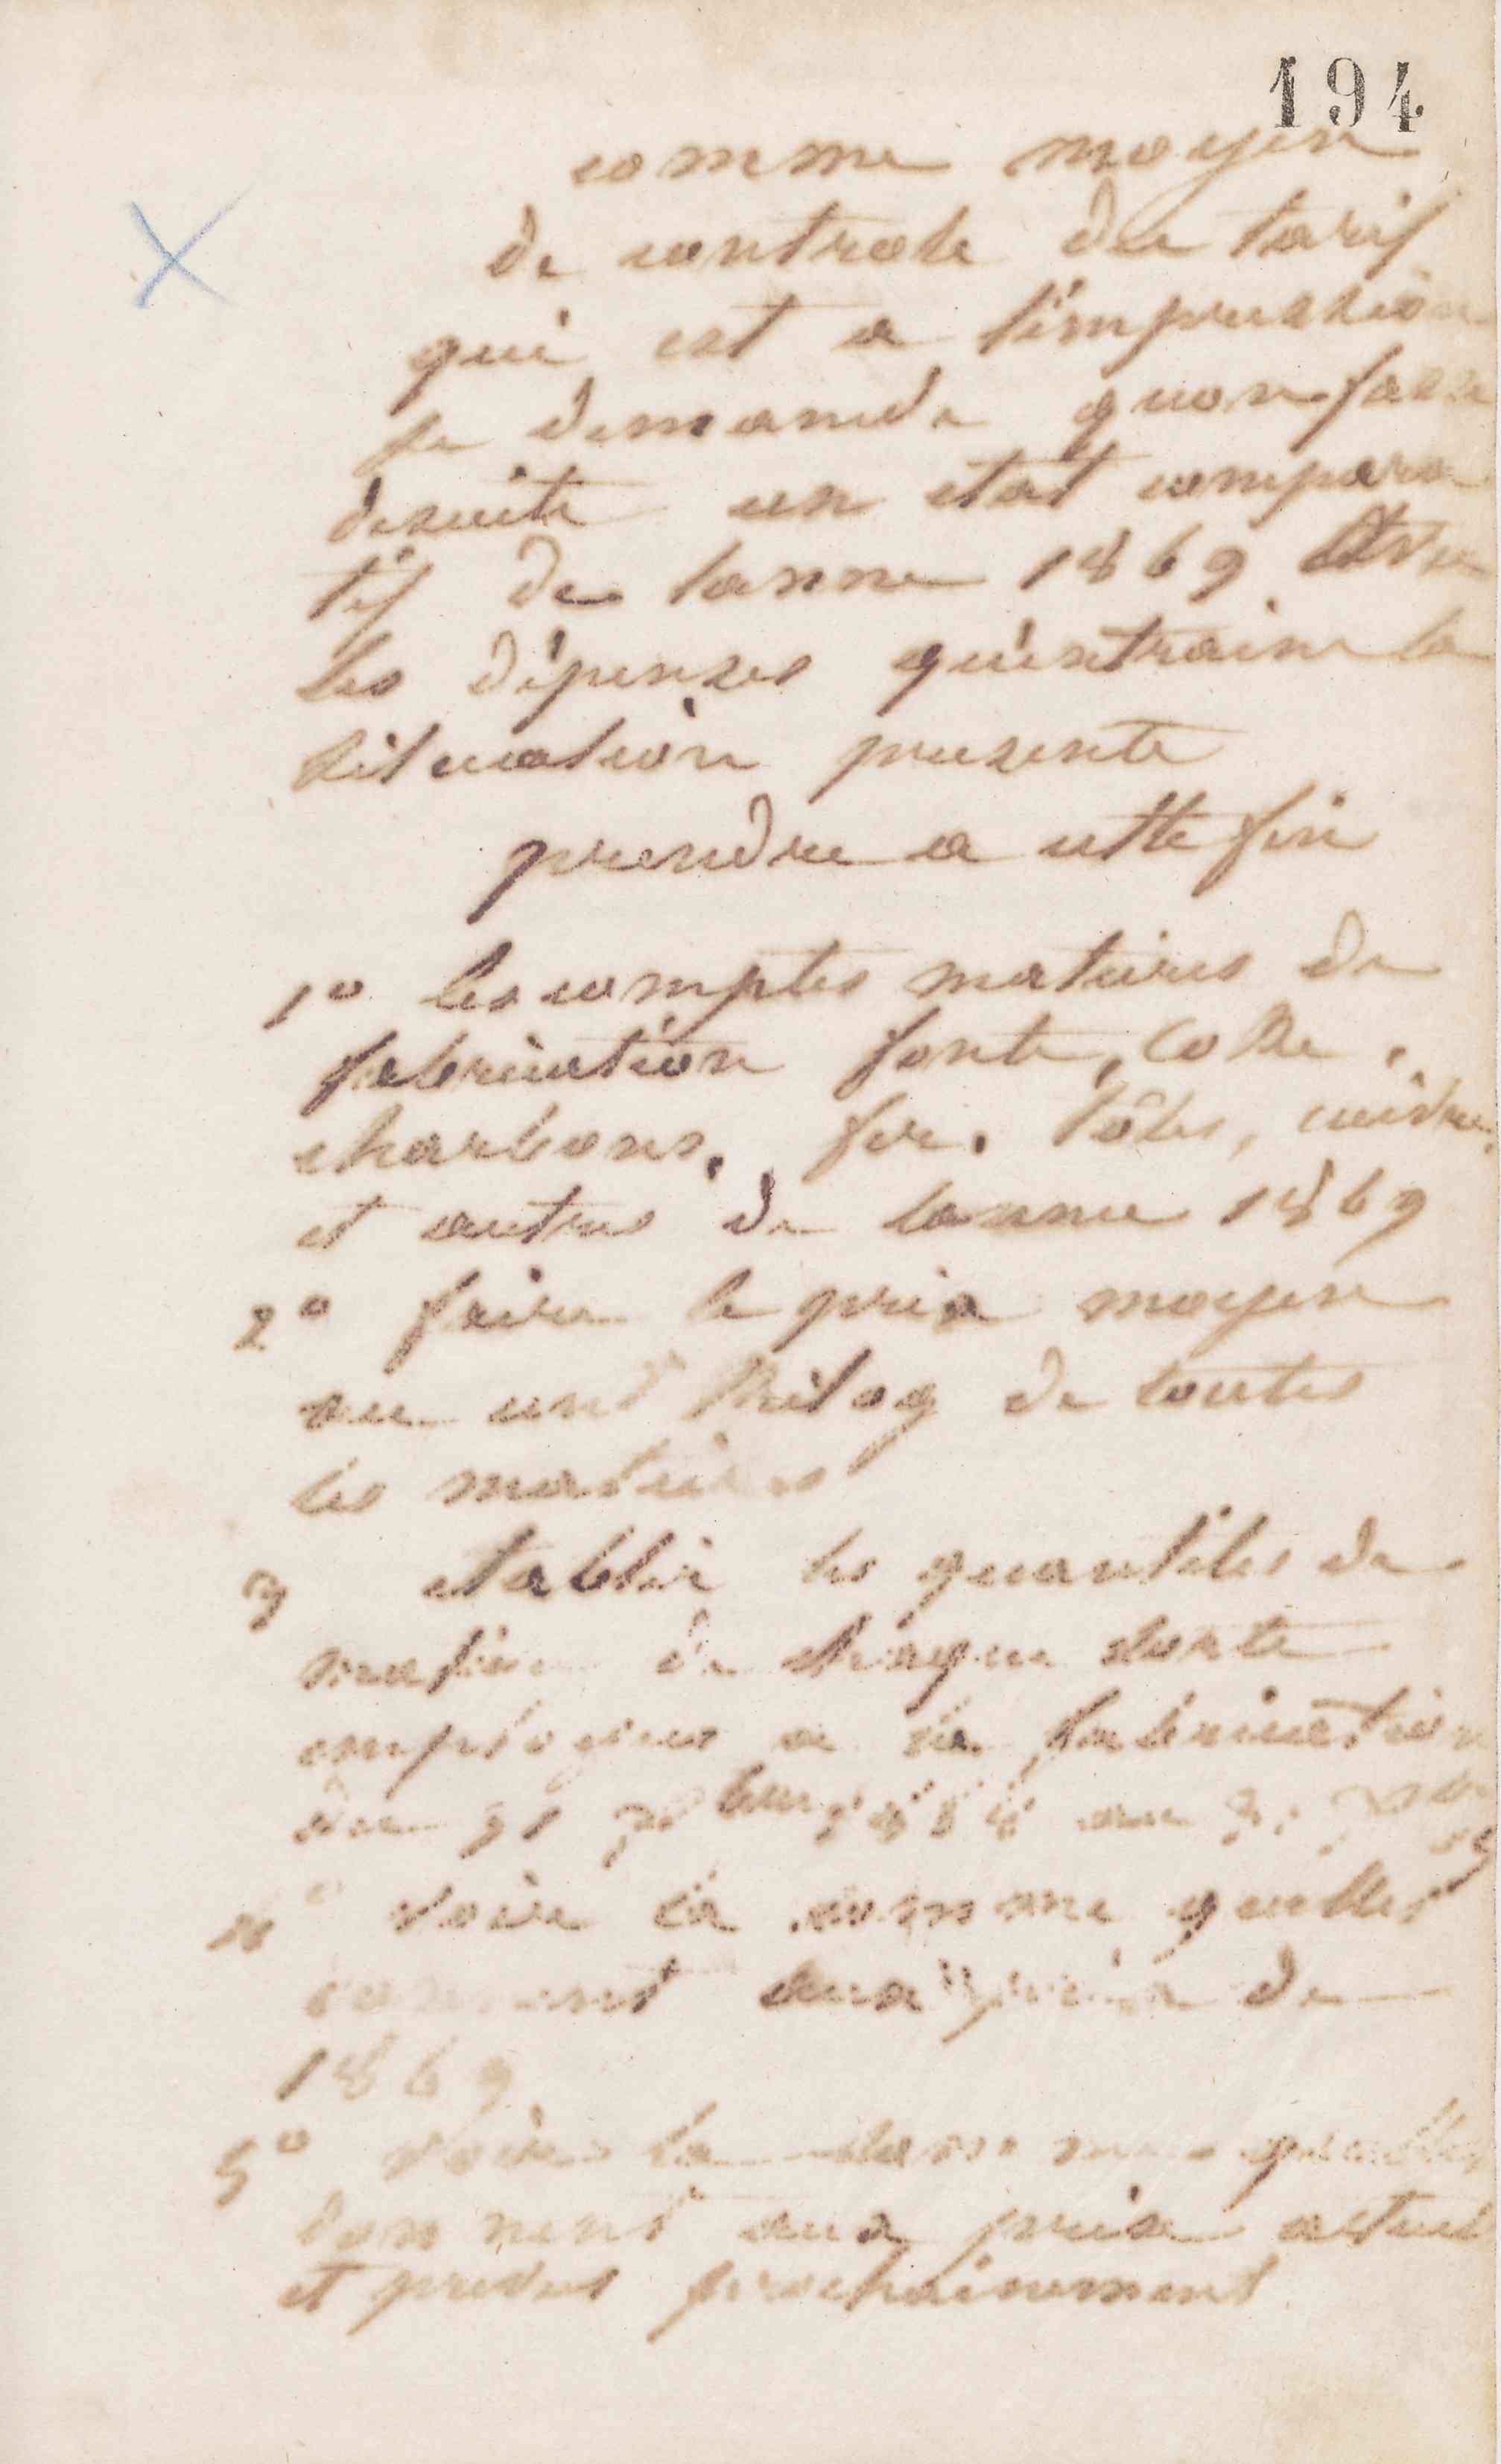 194
comme moyen
de controle du tarif
qui est a l'impression
je demande quon fasse
desuite un etat compara
tif de lanne 1869 avec
les dépenses qu'entraine la
situation presente
prendre a cette fin
1° les comptes matieres de
fabrication fonte, Coke,
charbons, fer, tôles, cuivre,
et autres de lannee 1869
2° faire le prix moyen
au cent Kilog de toutes
les matieres
3 etablir les quantites de
matiere de chaque sorte
employees a la fabrication
du 31 au
4° voir la somme quelles
donnent aux prix de
1869
5° voir la somme quelles
donnent aux prix actuels
et prevus prochainement